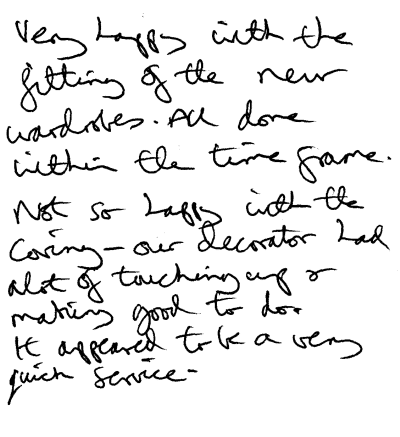 Very happy with the
fitting of the new
wardrobes. All done
within the time frame.
Not so happy with the
Coving - our decorator had
alot of touching up &
making good to do.
It appeared to be a very
quick service -